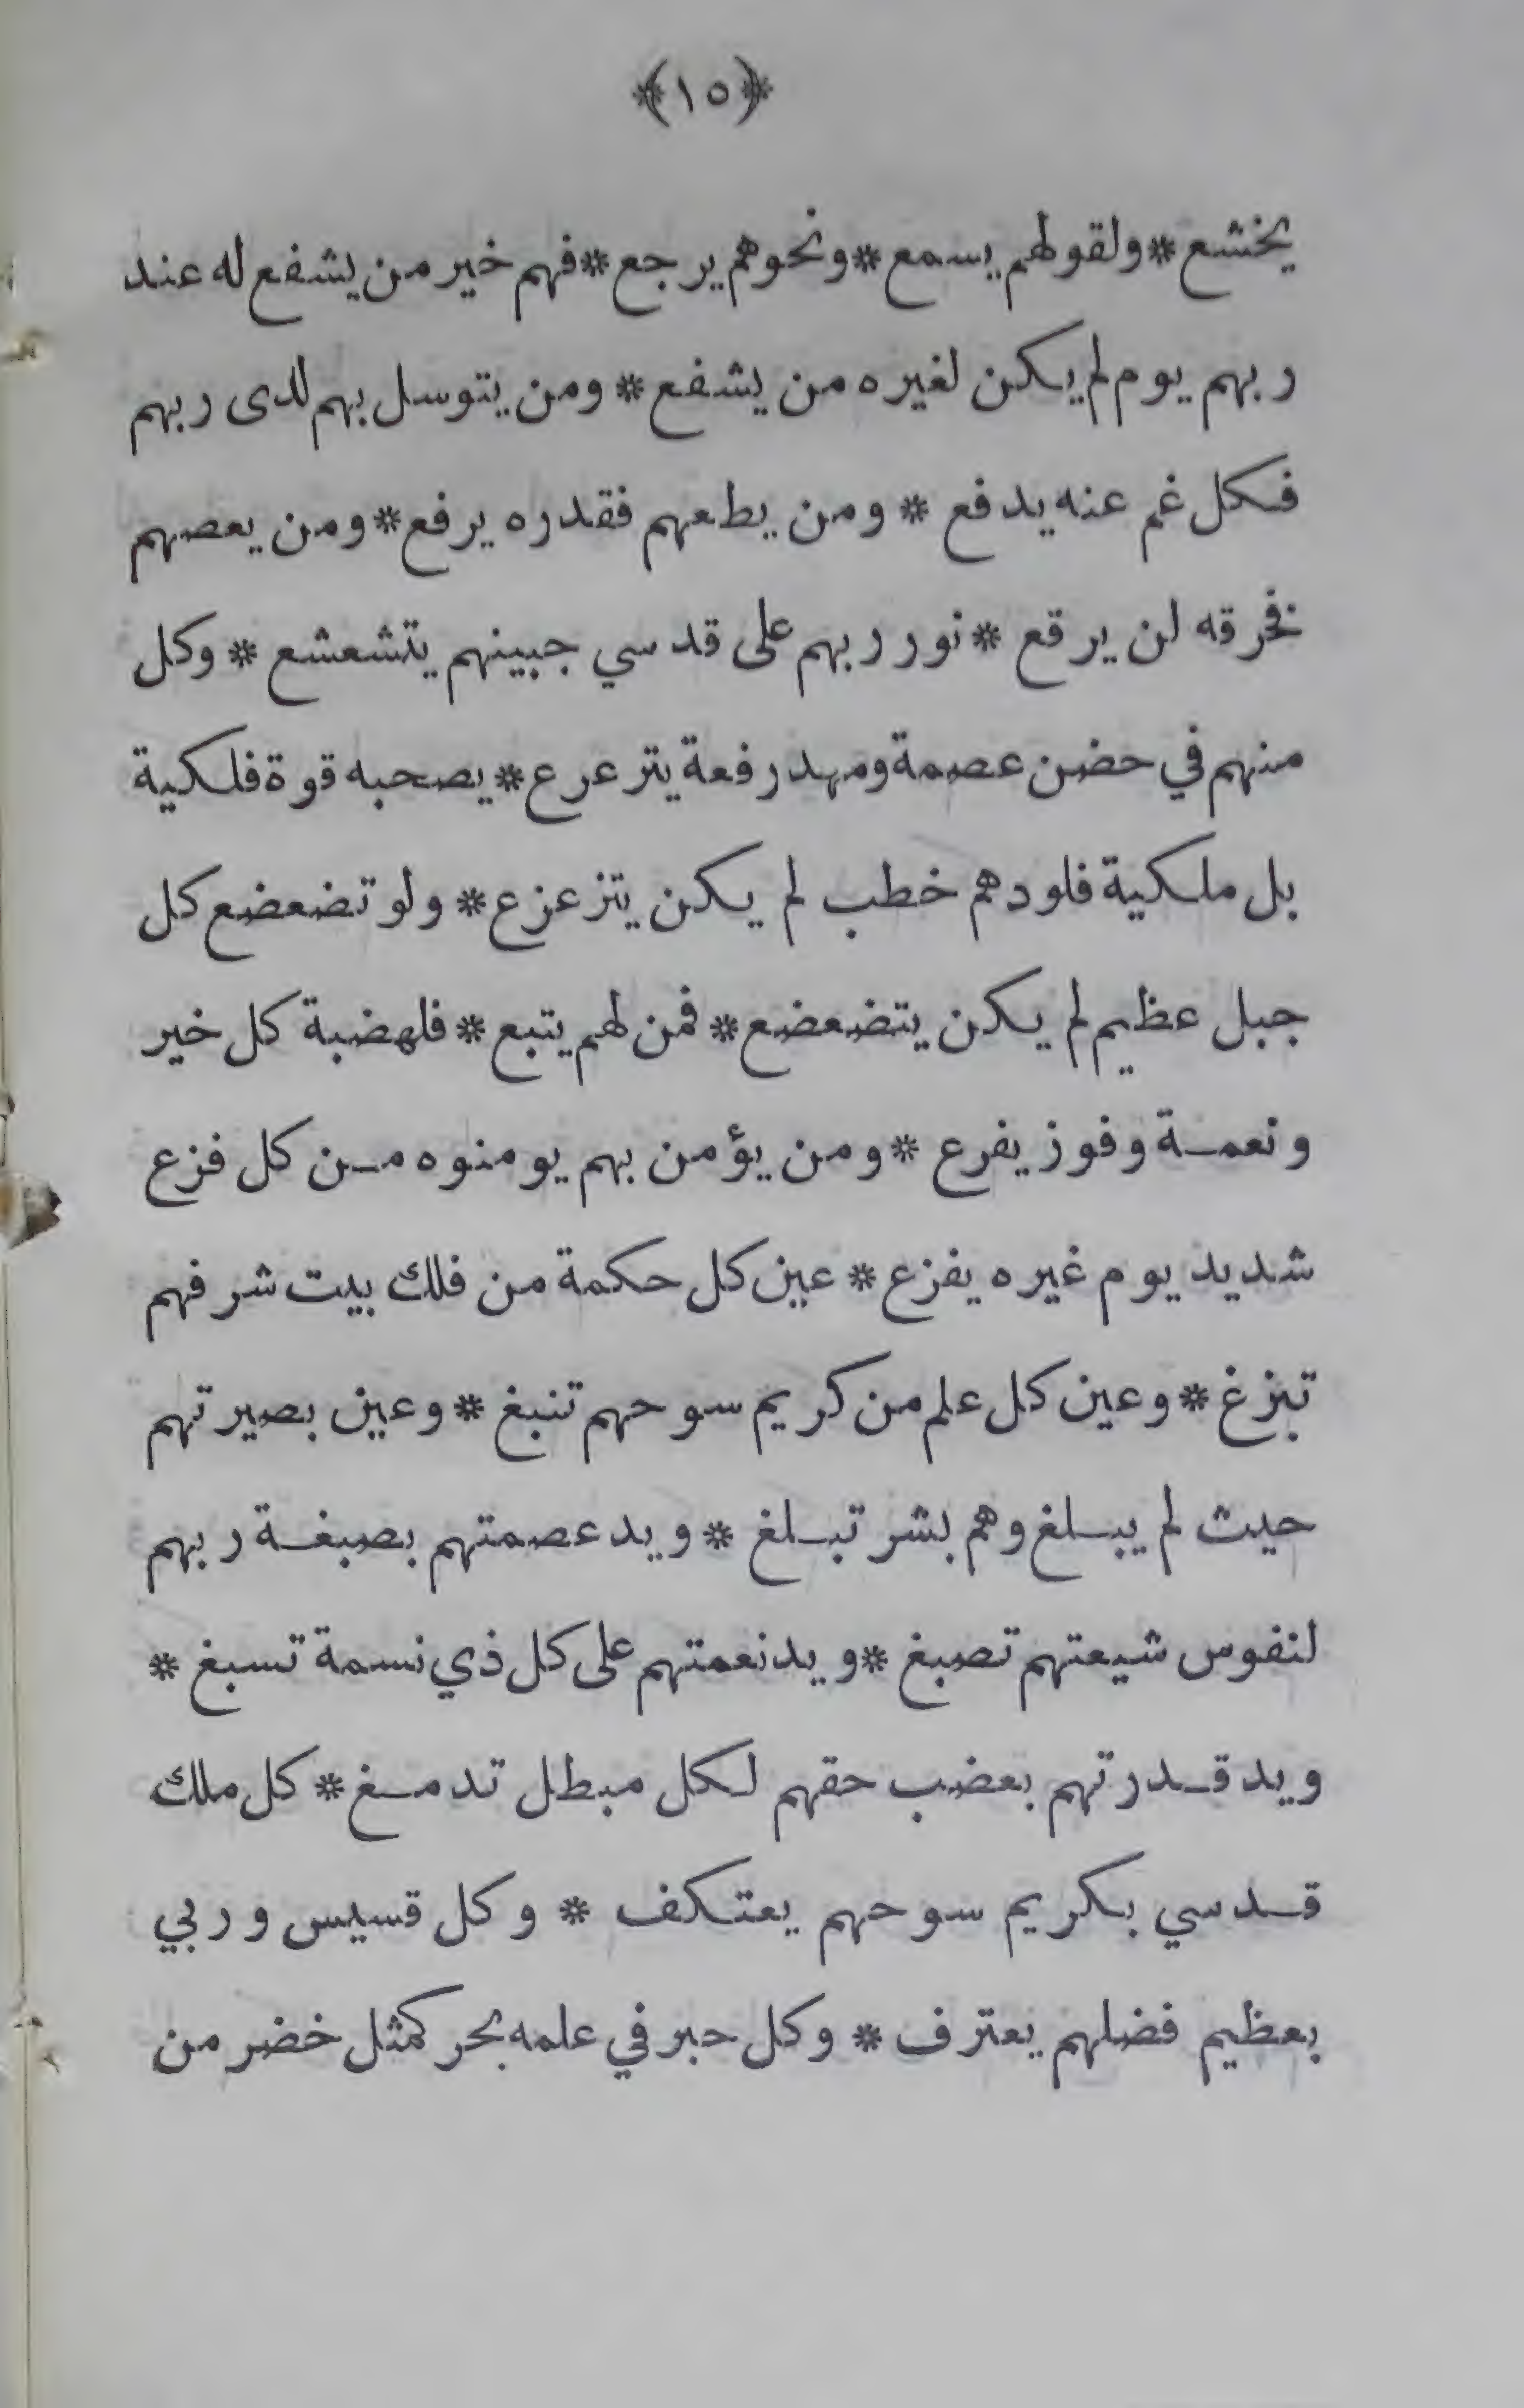 ﴿١٥﴾
يخشع * ولقولهم يسمع * ونحوهم يرجع * فهم خير من يشفع له عند
ربهم يوم لم يكن لغيره من يشفع * ومن يتوسل بهم لدى ربهم
فكل غم عنه يدفع * ومن يطعهم فقدره يرفع * ومن يعصهم
فخرقه لن يرقع * نور ربهم على قدسي جبينهم يتشعشع * وكل
منهم في حضن عصمة ومهد رفعة يترعرع * يصحبه قوة فلكية
بل ملكية فلو دهم خطب لم يكن يتزعزع * ولو تضعضع كل
جبل عظيم لم يكن يتضعضع * فمن لهم يتبع * فلهضبة كل خير
ونعمة وفوز يفرع * ومن يؤمن بهم يومنوه من كل فزع
شديد يوم غيره يفزع * عين كل حكمة من فلك بيت شرفهم
تبزغ * وعين كل علم من كريم سوحهم تنبغ * وعين بصيرتهم
حيث لم يبلغ وهم بشر تبلغ * ويد عصمتهم بصبغة ربهم
لنفوس شيعتهم تصبغ * ويد نعمتهم على كل ذي نسمة تسبغ *
ويد قدرتهم بعضب حقهم لكل مبطل تدمغ * كل ملك
قدسي بكريم سوحهم يعتكف * وكل قسيس وربي
بعظيم فضلهم يعترف * وكل حبر في علمه بحر كمثل خضر من